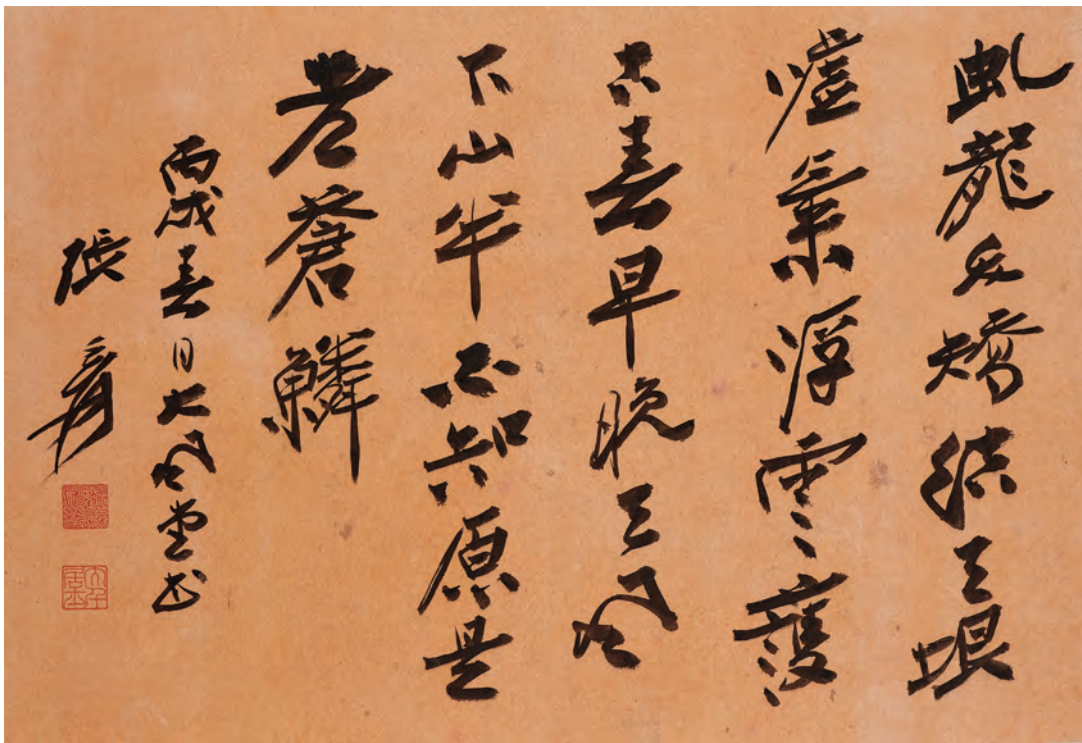 虬龍夭矯繞天垠
噓氣浮雲護
古春早晚天風
下山半不知原是
老蒼鱗
丙戌春日大風堂書
張爰
大千居士